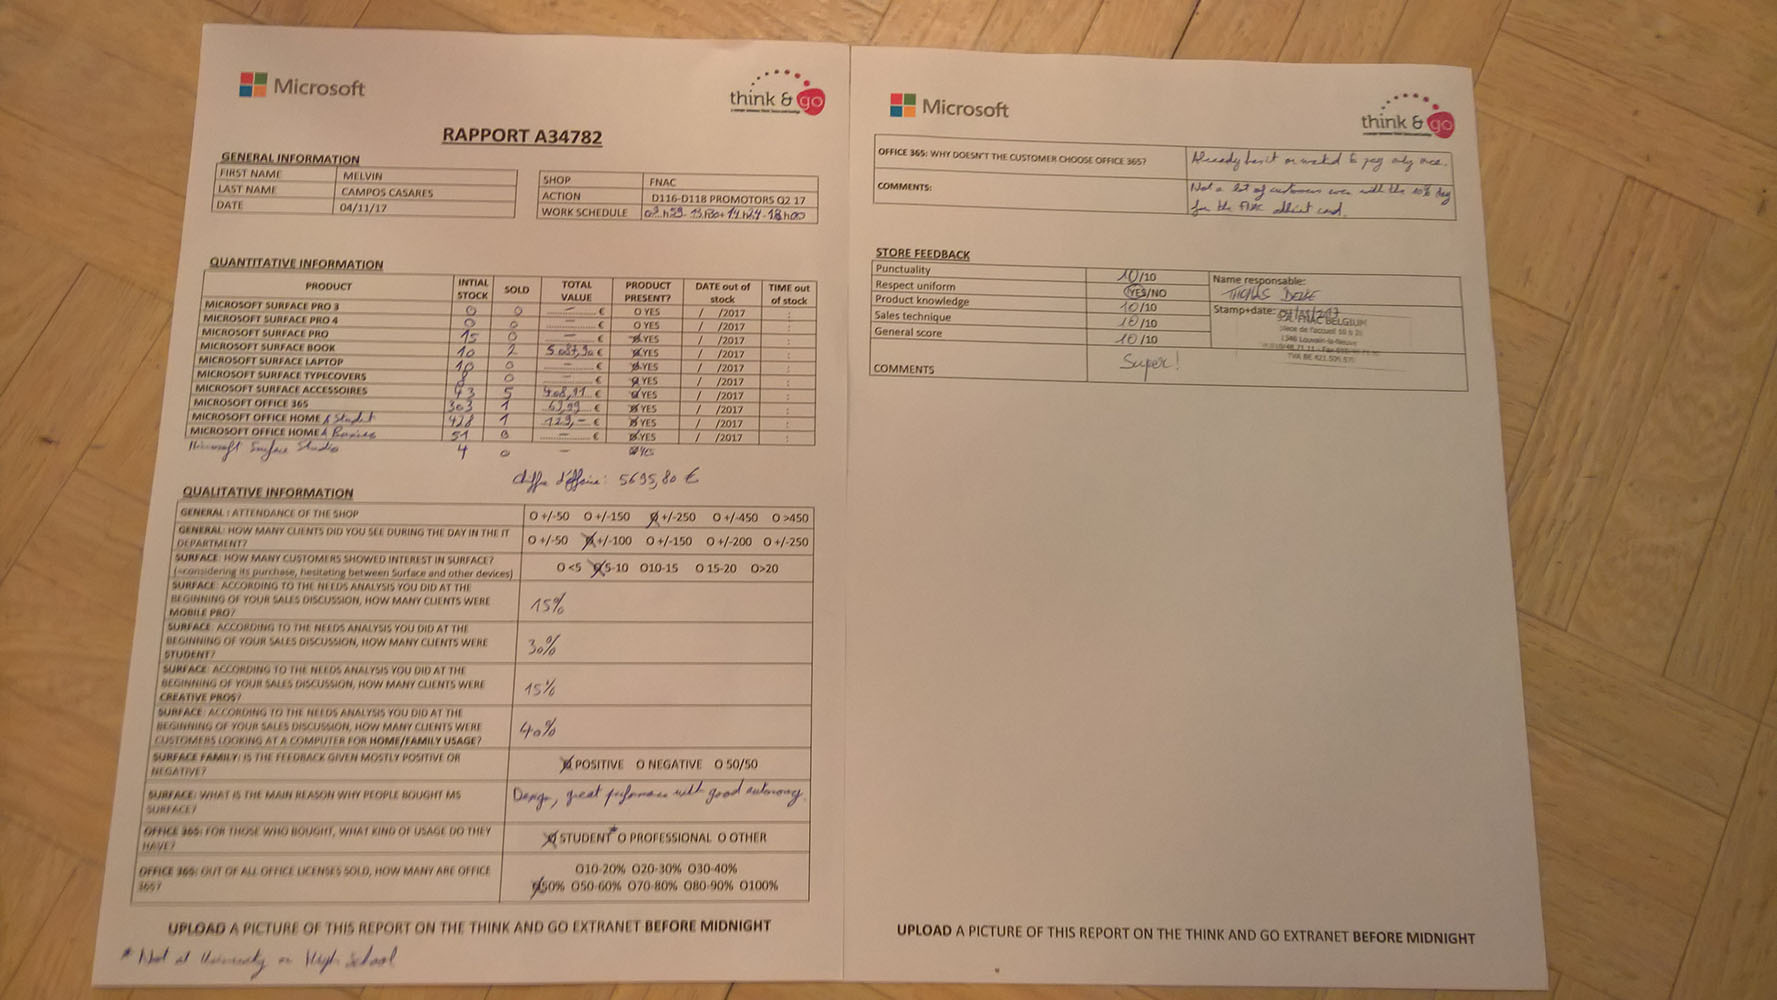 Microsoft
think & go
RAPPORT A34782
GENERAL INFORMATION
FIRST NAME MELVIN
LAST NAME CAMPOS CASARES
DATE 04/11/17
SHOP FNAC
ACTION D116-D118 PROMOTORS Q2 17
WORK SCHEDULE 13h30+14h24-18h00
QUANTITATIVE INFORMATION
PRODUCT INTIAL STOCK SOLD TOTAL VALUE PRODUCT PRESENT? DATE out of stock TIME out of stock
MICROSOFT SURFACE PRO 3 0 0 — € O YES / /2017 :
MICROSOFT SURFACE PRO 4 0 0 — € O YES / /2017 :
MICROSOFT SURFACE PRO 15 0 — € YES / /2017 :
MICROSOFT SURFACE BOOK 10 2 € YES / /2017 :
MICROSOFT SURFACE LAPTOP 10 0 — € YES / /2017 :
MICROSOFT SURFACE TYPECOVERS 8 0 — € YES / /2017 :
MICROSOFT SURFACE ACCESSOIRES 43 5 408,91 € YES / /2017 :
MICROSOFT OFFICE 365 303 1 69,99 € YES / /2017 :
MICROSOFT OFFICE HOME & Student 428 1 129,- € YES / /2017 :
MICROSOFT OFFICE HOME & Business 51 0 — € YES / /2017 :
Microsoft Surface Studio 4 0 — YES
Chiffre d'affaire: 5695,80 €
QUALITATIVE INFORMATION
GENERAL : ATTENDANCE OF THE SHOP O +/-50 O +/-150 +/-250 O +/-450 O >450
GENERAL: HOW MANY CLIENTS DID YOU SEE DURING THE DAY IN THE IT
DEPARTMENT? O +/-50 +/-100 O +/-150 O +/-200 O +/-250
SURFACE: HOW MANY CUSTOMERS SHOWED INTEREST IN SURFACE?
(=considering its purchase, hesitating between Surface and other devices) O <5 5-10 O10-15 O 15-20 O>20
SURFACE: ACCORDING TO THE NEEDS ANALYSIS YOU DID AT THE
BEGINNING OF YOUR SALES DISCUSSION, HOW MANY CLIENTS WERE
MOBILE PRO? 15%
SURFACE: ACCORDING TO THE NEEDS ANALYSIS YOU DID AT THE
BEGINNING OF YOUR SALES DISCUSSION, HOW MANY CLIENTS WERE
STUDENT? 30%
SURFACE: ACCORDING TO THE NEEDS ANALYSIS YOU DID AT THE
BEGINNING OF YOUR SALES DISCUSSION, HOW MANY CLIENTS WERE
CREATIVE PROS? 15%
SURFACE: ACCORDING TO THE NEEDS ANALYSIS YOU DID AT THE
BEGINNING OF YOUR SALES DISCUSSION, HOW MANY CLIENTS WERE
CUSTOMERS LOOKING AT A COMPUTER FOR HOME/FAMILY USAGE? 40%
SURFACE FAMILY: IS THE FEEDBACK GIVEN MOSTLY POSITIVE OR
NEGATIVE? POSITIVE O NEGATIVE O 50/50
SURFACE: WHAT IS THE MAIN REASON WHY PEOPLE BOUGHT MS
SURFACE? Design, great performance with good autonomy.
OFFICE 365: FOR THOSE WHO BOUGHT, WHAT KIND OF USAGE DO THEY
HAVE? STUDENT* O PROFESSIONAL O OTHER
OFFICE 365: OUT OF ALL OFFICE LICENSES SOLD, HOW MANY ARE OFFICE
365? O10-20% O20-30% O30-40%
50% O50-60% O70-80% O80-90% O100%
UPLOAD A PICTURE OF THIS REPORT ON THE THINK AND GO EXTRANET BEFORE MIDNIGHT
* Not at University or High School
Microsoft
think & go
OFFICE 365: WHY DOESN'T THE CUSTOMER CHOOSE OFFICE 365? Already has it or wanted to pay only once.
COMMENTS: Not a lot of customers even with the 10% day
for the FNAC adhérent card.
STORE FEEDBACK
Punctuality 10/10
Respect uniform YES/NO
Product knowledge 10/10
Sales technique 10/10
General score 10/10
Name responsable:
THOMAS
Stamp+date:
FNAC BELGIUM
place de l'accueil 10 à
1348 Louvain-la-Neuve
TVA BE 421.506.570
COMMENTS Super!
UPLOAD A PICTURE OF THIS REPORT ON THE THINK AND GO EXTRANET BEFORE MIDNIGHT